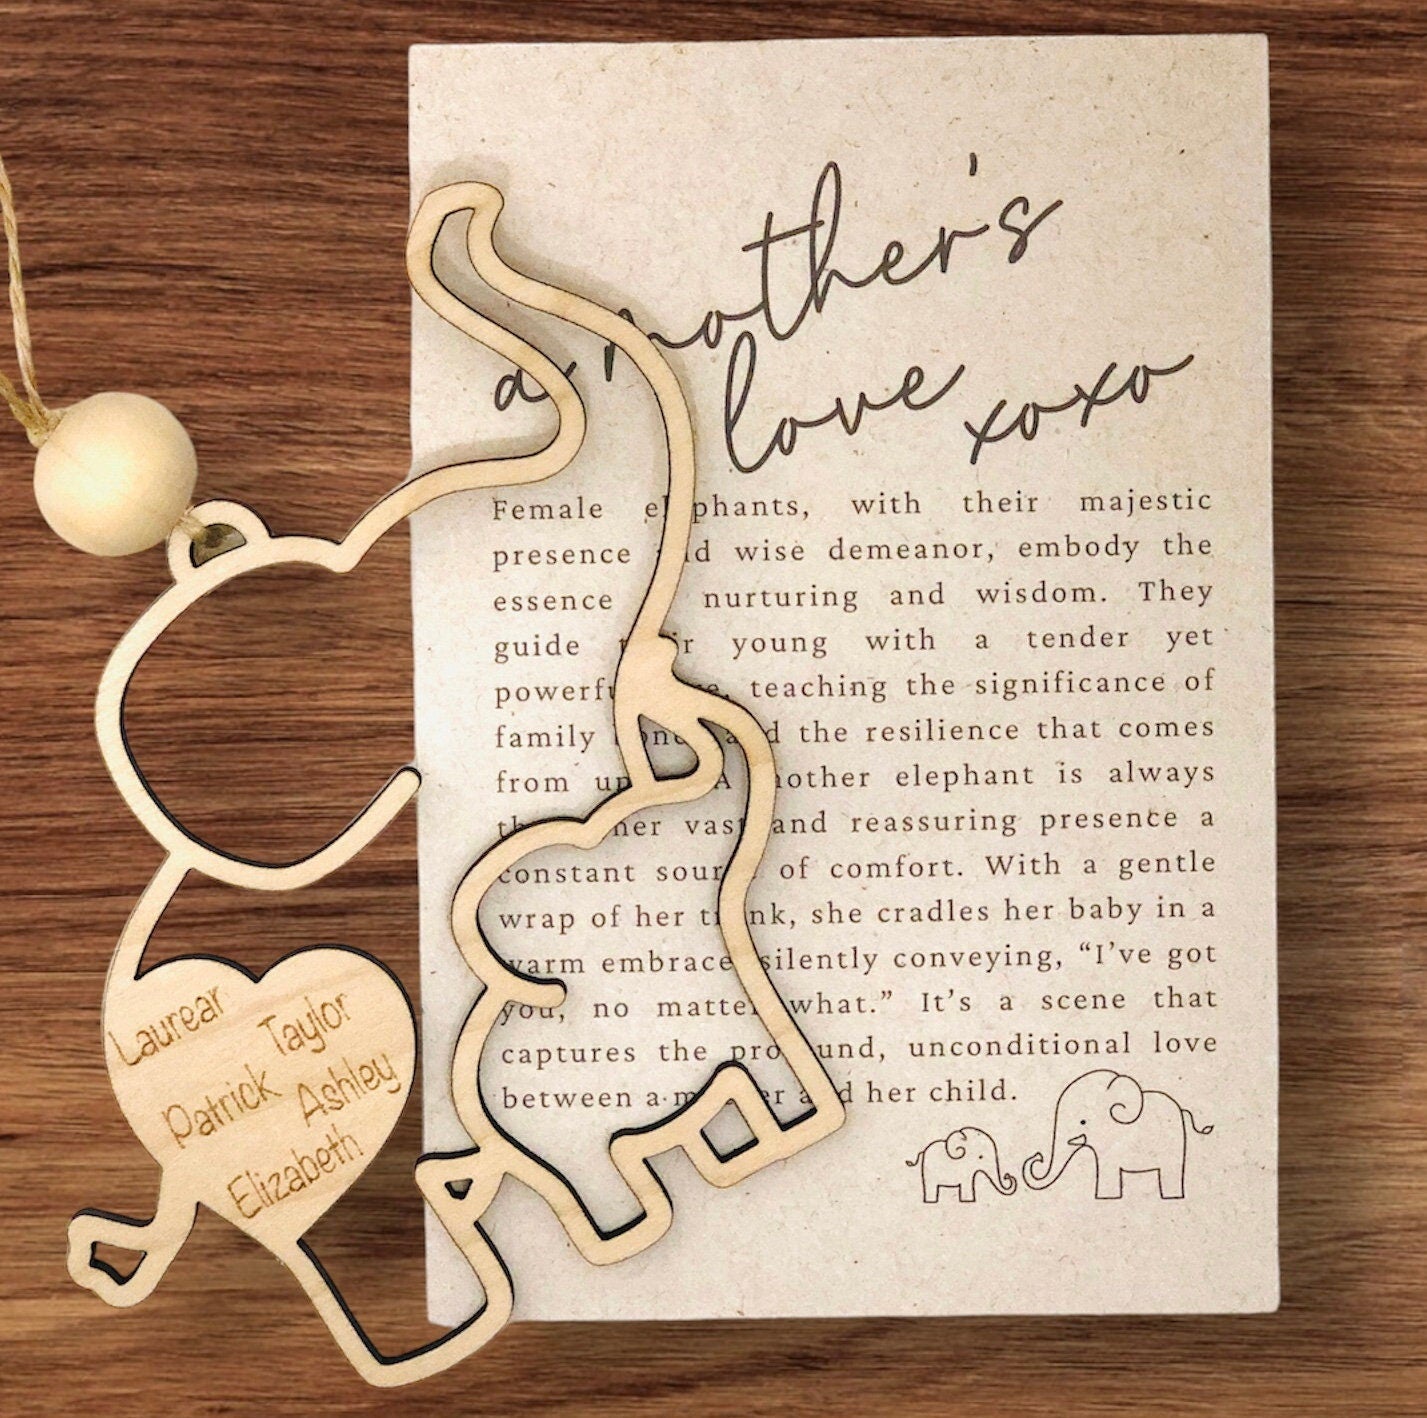 a mother's
love xoxo
Female elephants, with their majestic
presence and wise demeanor, embody the
essence nurturing and wisdom. They
guide their young with a tender yet
teaching the significance of
family and the resilience that comes
from A mother elephant is always
her vast and reassuring presence a
constant source of comfort. With a gentle
wrap of her trunk, she cradles her baby in a
warm embrace silently conveying, “I’ve got
you, no matter what.” It’s a scene that
captures the profound, unconditional love
between a mother and her child.
Laurear
Taylor
Patrick
Ashley
Elizabeth